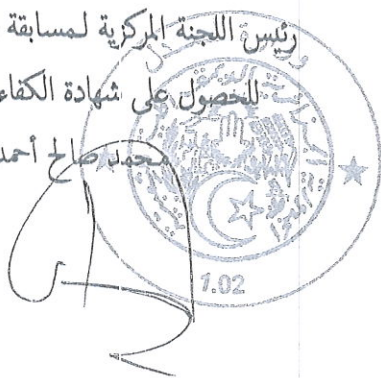 رئيس اللجنة المركزية لمسابقة
للحصول على شهادة الكفاء
محمد صالح أحمد
1.02